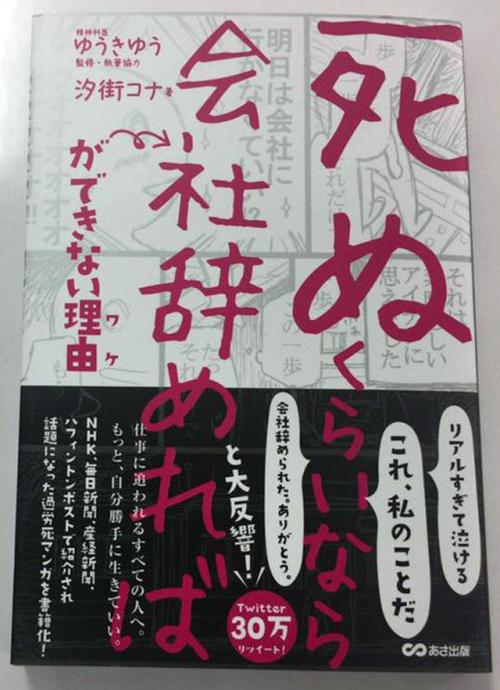 死ぬくらいなら
会社辞めれば
ができない理由
ワケ
精神科医
ゆうきゆう
監修・執筆協力
汐街コナ 著
明日は会社に
それは
思えました
この一歩
リアルすぎて泣ける
これ、私のことだ
会社辞められた。ありがとう。
と大反響!
Twitter
30万
リツイート!
仕事に追われるすべての人へ。
もっと、自分勝手に生きていい。
NHK、毎日新聞、産経新聞、
ハフィントンポストで紹介され
話題になった過労死マンガを書籍化!
あさ出版